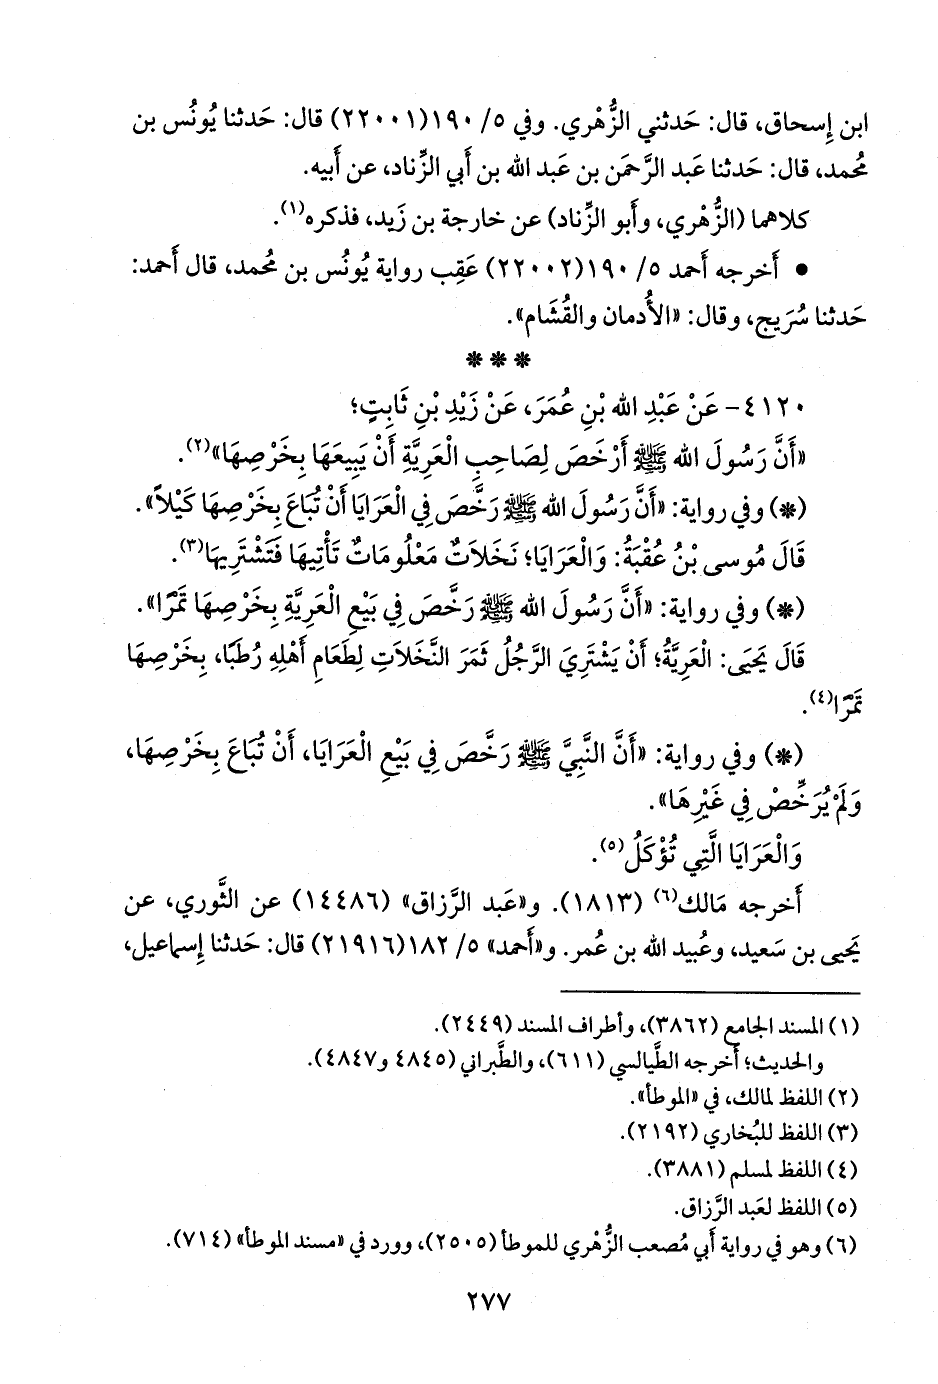 ابن إِسحاق، قال: حَدثني الزُّهْري. وفي ٥/ ١٩٠(٢٢٠٠١) قال: حَدثنا يُونُس بن
مُحمد، قال: حَدثنا عَبد الرَّحمَن بن عَبد الله بن أَبي الزِّناد، عن أَبيه.
كلاهما (الزُّهْري، وأَبو الزِّناد) عن خارجة بن زَيد، فذكره(١).
• أَخرجه أَحمد ٥/ ١٩٠(٢٢٠٠٢) عَقِب رواية يُونُس بن مُحمد، قال أَحمد:
حَدثنا سُرَيج، وقال: «الأُدمان والقُشَام».
* * *
٤١٢٠- عَنْ عَبْدِ الله بْنِ عُمَرَ، عَنْ زَيْدِ بْنِ ثَابِتٍ؛
«أَنَّ رَسُولَ الله ﷺ أَرْخَصَ لِصَاحِبِ الْعَرِيَّةِ أَنْ يَبِيعَهَا بِخَرْصِهَا»(٢).
(*) وفي رواية: «أَنَّ رَسُولَ الله ﷺ رَخَّصَ فِي الْعَرَايَا أَنْ تُبَاعَ بِخَرْصِهَا كَيْلاً».
قَالَ مُوسى بْنُ عُقْبَةُ: وَالْعَرَايَا؛ نَخَلاَتٌ مَعْلُومَاتٌ تَأْتِيهَا فَتَشْتَرِيهَا(٣).
(*) وفي رواية: «أَنَّ رَسُولَ الله ﷺ رَخَّصَ فِي بَيْعِ الْعَرِيَّةِ بِخَرْصِهَا تَمْرًا».
قَالَ يَحيَى: الْعَرِيَّةُ؛ أَنْ يَشْتَرِيَ الرَّجُلُ ثَمَرَ النَّخَلاَتِ لِطَعَامِ أَهْلِهِ رُطَبًا، بِخَرْصِهَا
تَمْرًا(٤).
(*) وفي رواية: «أَنَّ النَّبِيَّ ﷺ رَخَّصَ فِي بَيْعِ الْعَرَايَا، أَنْ تُبَاعَ بِخَرْصِهَا،
وَلَمْ يُرَخِّصْ فِي غَيْرِهَا».
وَالْعَرَايَا الَّتِي تُؤْكَلُ(٥).
أَخرجه مَالك(٦) (١٨١٣). و«عَبد الرَّزاق» (١٤٤٨٦) عن الثَّوري، عن
يَحيى بن سَعيد، وعُبيد الله بن عُمر. و«أَحمد» ٥/ ١٨٢(٢١٩١٦) قال: حَدثنا إِسماعيل،
(١) المسند الجامع (٣٨٦٢)، وأطراف المسند (٢٤٤٩).
والحديث؛ أَخرجه الطَّيالسي (٦١١)، والطَّبراني (٤٨٤٥ و٤٨٤٧).
(٢) اللفظ لمالك، في «الموطأ».
(٣) اللفظ للبُخاري (٢١٩٢).
(٤) اللفظ لمسلم (٣٨٨١).
(٥) اللفظ لعَبد الرَّزاق.
(٦) وهو في رواية أَبي مُصعب الزُّهْري للموطأ (٢٥٠٥)، وورد في «مسند الموطأ» (٧١٤).
٢٧٧